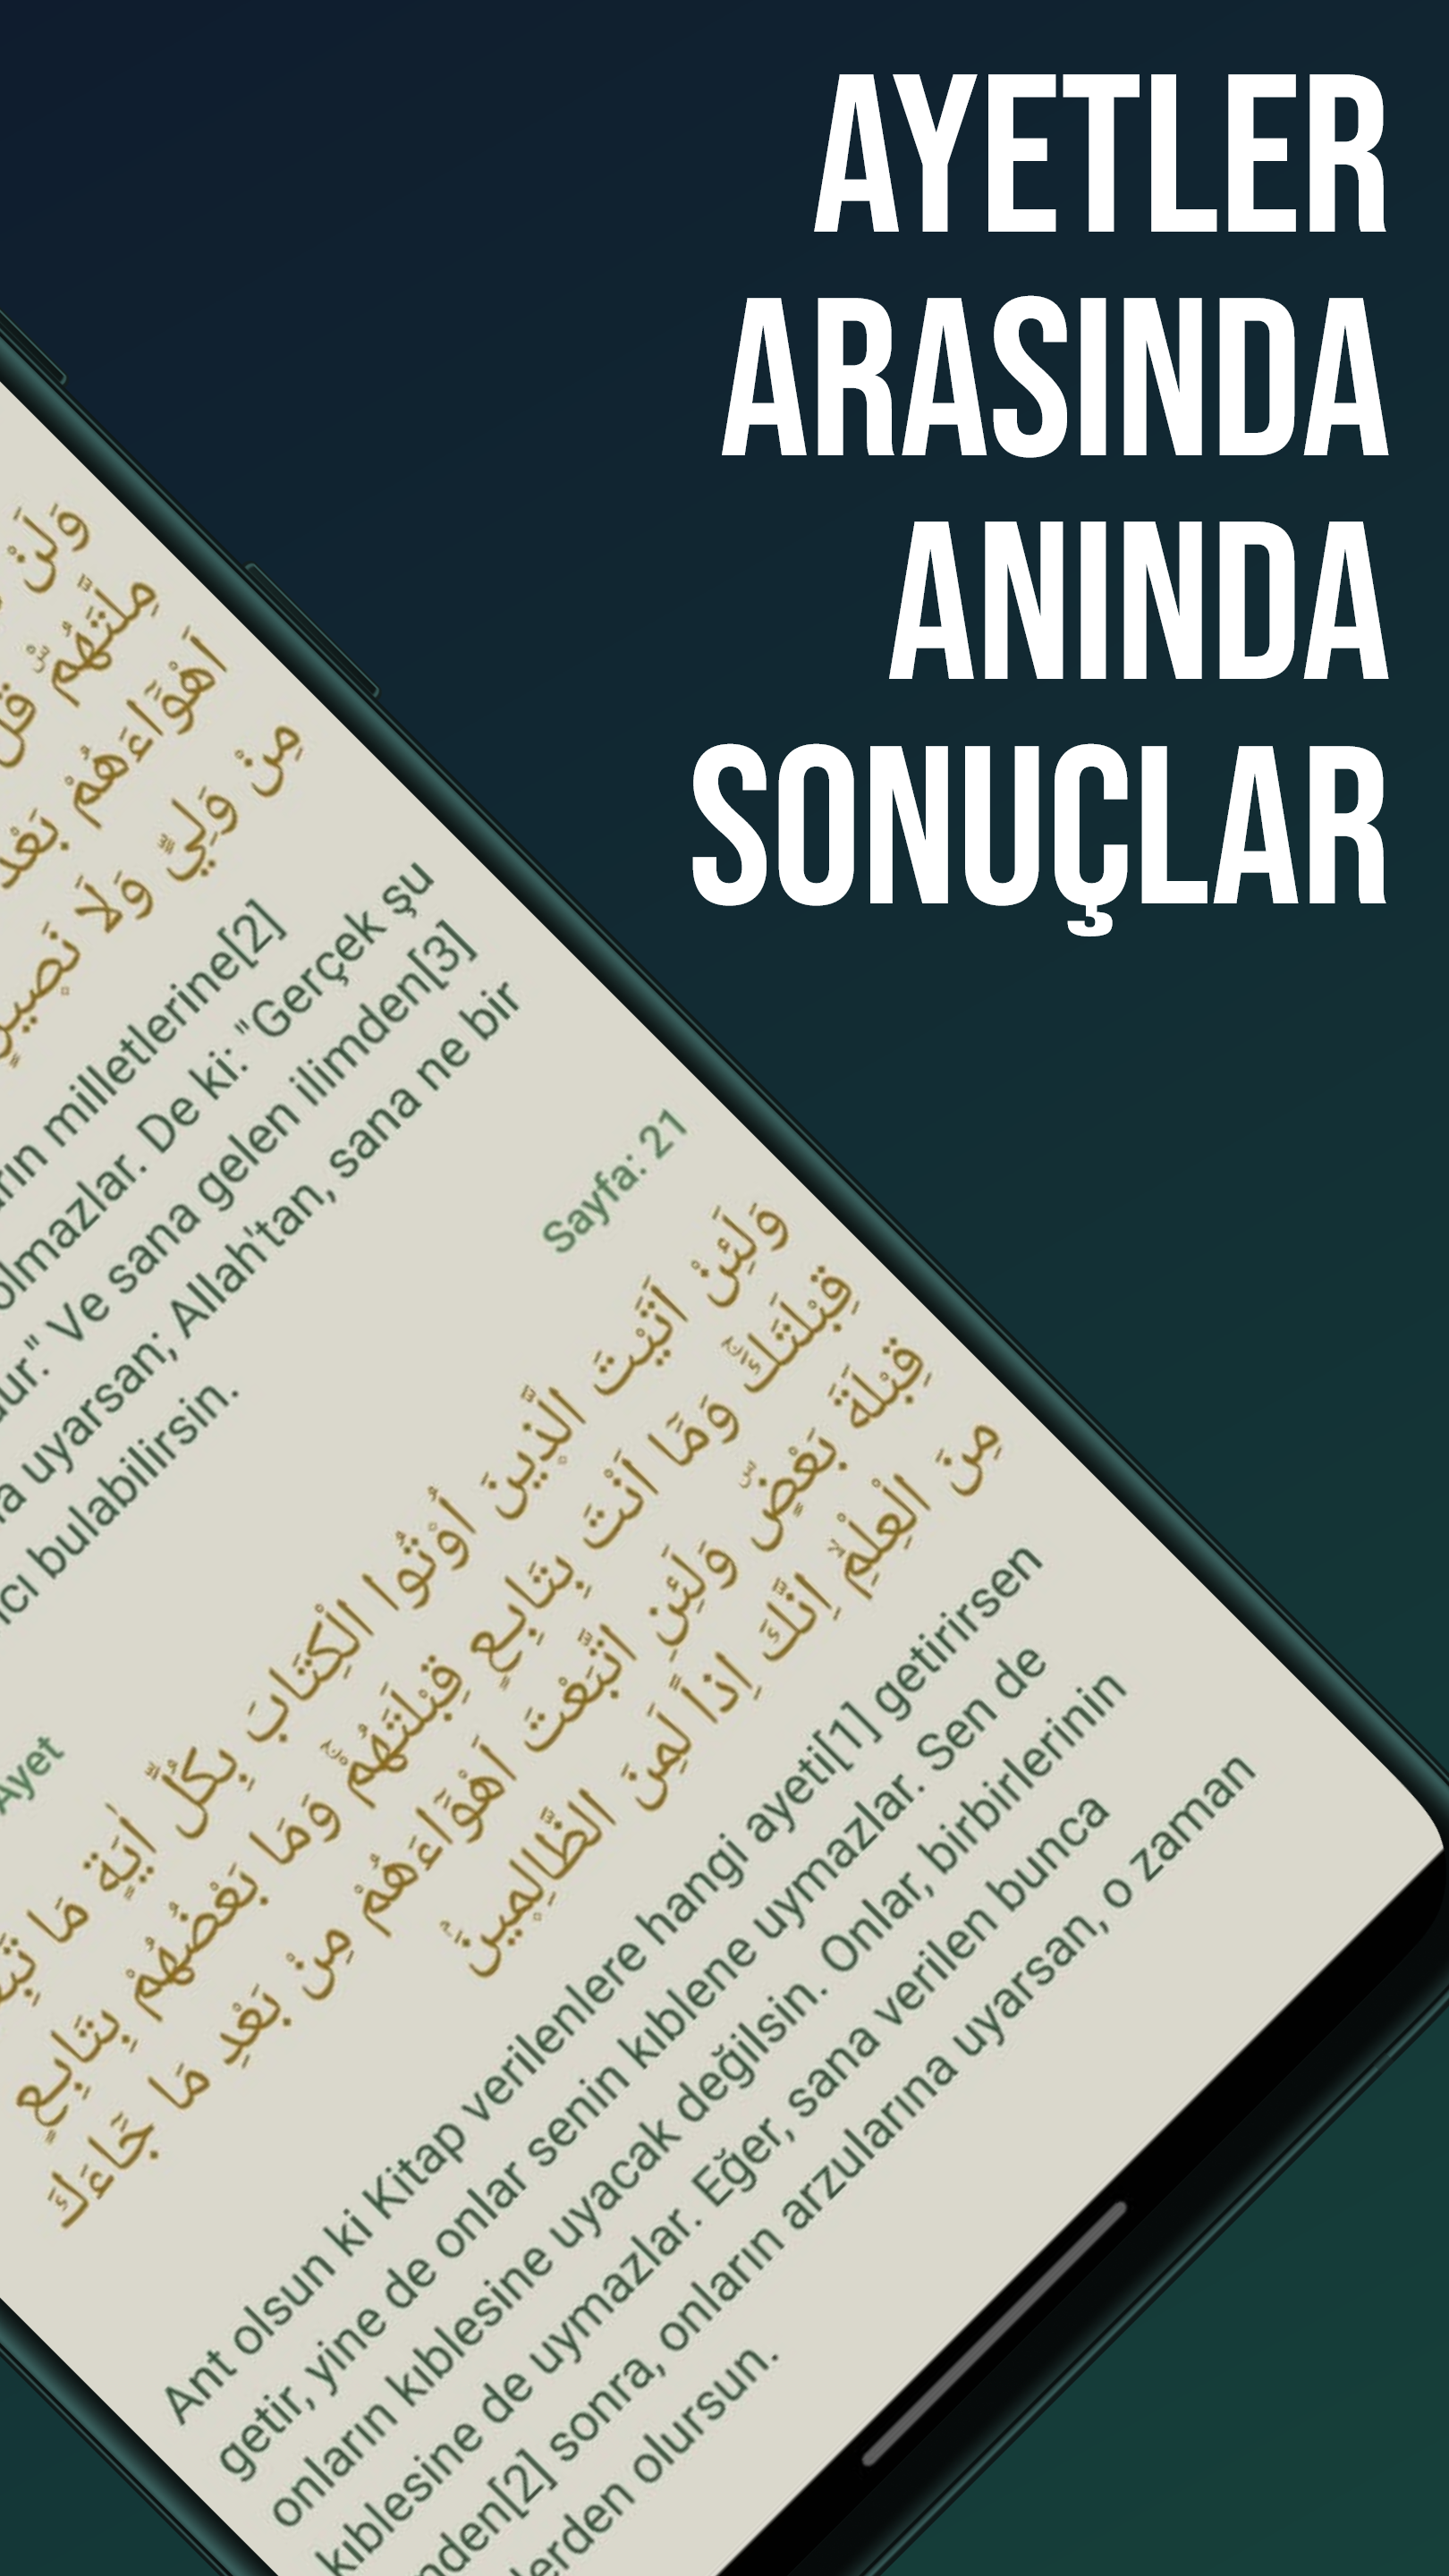 AYETLER
ARASINDA
ANINDA
SONUÇLAR
وَلَنْ
مِلَّتَهُمْۜ قُلْ
اَهْوَٓاءَهُمْ بَعْدَ
مِنْ وَلِيٍّ وَلَا نَصِيرٍ
milletlerine[2]
olmazlar. De ki: "Gerçek şu
Ve sana gelen ilimden[3]
uyarsan; Allah'tan, sana ne bir
bulabilirsin.
Ayet
Sayfa: 21
وَلَئِنْ اَتَيْتَ الَّذ۪ينَ اُو۫تُوا الْكِتَابَ بِكُلِّ اٰيَةٍ مَا
قِبْلَتَكَۚ وَمَٓا اَنْتَ بِتَابِعٍ قِبْلَتَهُمْۚ وَمَا بَعْضُهُمْ بِتَابِعٍ
قِبْلَةَ بَعْضٍۜ وَلَئِنِ اتَّبَعْتَ اَهْوَٓاءَهُمْ مِنْ بَعْدِ مَا جَٓاءَكَ
مِنَ الْعِلْمِۙ اِنَّكَ اِذاً لَمِنَ الظَّالِم۪ينَۢ
Ant olsun ki Kitap verilenlere hangi ayeti[1] getirirsen
getir, yine de onlar senin kıblene uymazlar. Sen de
onların kıblesine uyacak değilsin. Onlar, birbirlerinin
kıblesine de uymazlar. Eğer, sana verilen bunca
sonra, onların arzularına uyarsan, o zaman
olursun.